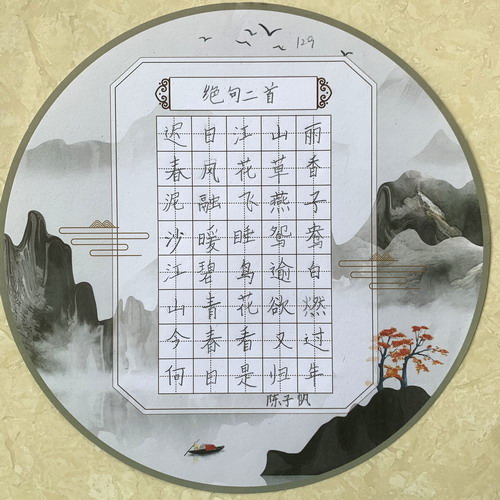 129
绝句二首
迟日江山丽
春风花草香
泥融飞燕子
沙暖睡鸳鸯
江碧鸟逾白
山青花欲燃
今春看又过
何日是归年
陈子帆